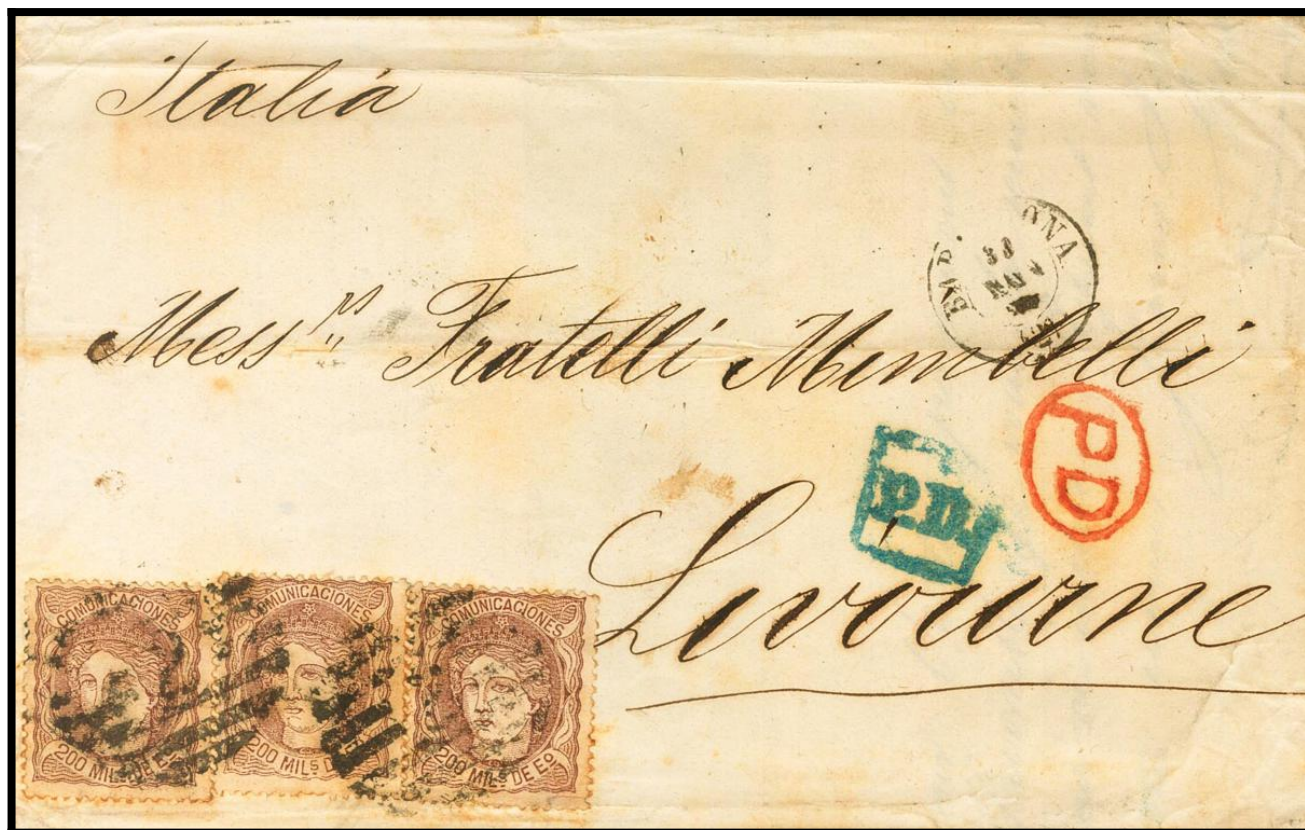 Italia
Mess.rs Fratelli Mimbelli
PD
P.D.
Livourne
COMUNICACIONES
200 MILS DE Eo
COMUNICACIONES
200 MILS
COMUNICACIONES
200 MILS DE Eo